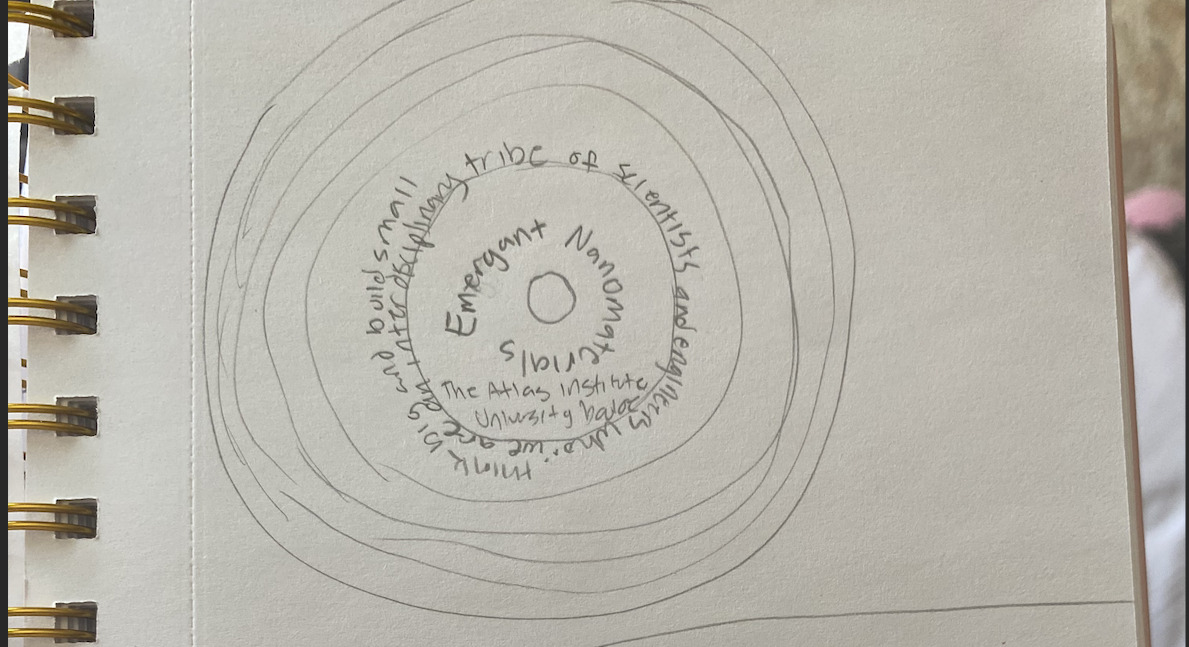 Emergant Nanomaterials
The Atlas institute
University
we are an interdisciplinary tribe of scientists and engineers who think big and build small